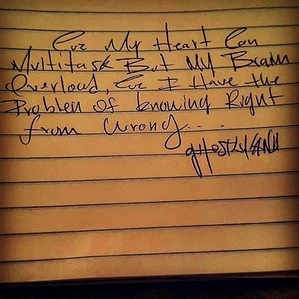 My Heart Can
Multitask But My Brain
Overload, I Have the
Problem of knowing Right
from wrong....